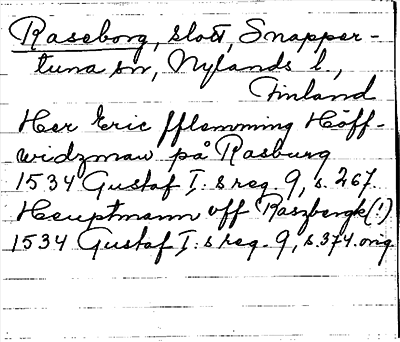 Raseborg, slott, Snapper-
tuna sn, Nylands l.,
Finland
Her Eric fflemming Höff-
widzman på Rasburg
1534 Gustaf I:s reg. 9, s. 267.
Heuptmann off Raszbergk(!)
1534 Gustaf I:s reg. 9, s. 374. orig